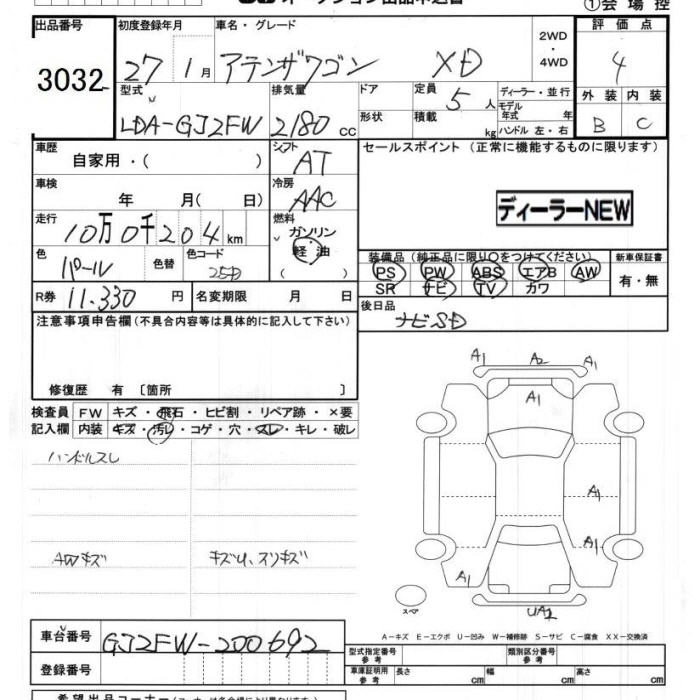 ①会場控
出品番号 初度登録年月 車名・グレード 評価点
3032 27 1月 アテンザワゴン XD 2WD・4WD 4
型式 排気量 ドア 定員 5人 ディーラー・並行 外装 内装
LDA-GJ2FW 2180cc 形状 積載 kg モデル年式 年 B C
ハンドル 左・右
車歴 シフト セールスポイント(正常に機能するものに限ります)
自家用・( ) AT
車検 冷房
年 月( 日) AAC ディーラーNEW
走行 燃料
10万0千204km ガソリン
色 色替 色コード 軽油 装備品(純正品に限り○をつけてください) 新車保証書
パール 25D ( ) PS PW ABS エアB AW 有・無
SR ナビ TV カワ
R券 11.330円 名変期限 月 日 後日品
注意事項申告欄(不具合内容等は具体的に記入して下さい) ナビSD
修復歴 有〔箇所 〕
A1 A2 A1
A1
検査員 FW キズ・飛石・ヒビ割・リペア跡・×要
記入欄 内装 キズ・汚レ・コゲ・穴・スレ・キレ・破レ
ハンドルスレ
A1
A1
AWキズ キズU、スリキズ
A1
スペア UA2
A-キズ E-エクボ U-凹み W-補修跡 S-サビ C-腐食 XX-交換済
車台番号 GJ2FW-200692
型式指定番号 参考 類別区分番号 参考
登録番号 車庫証明用 参考 長さ cm 幅 cm 高さ cm